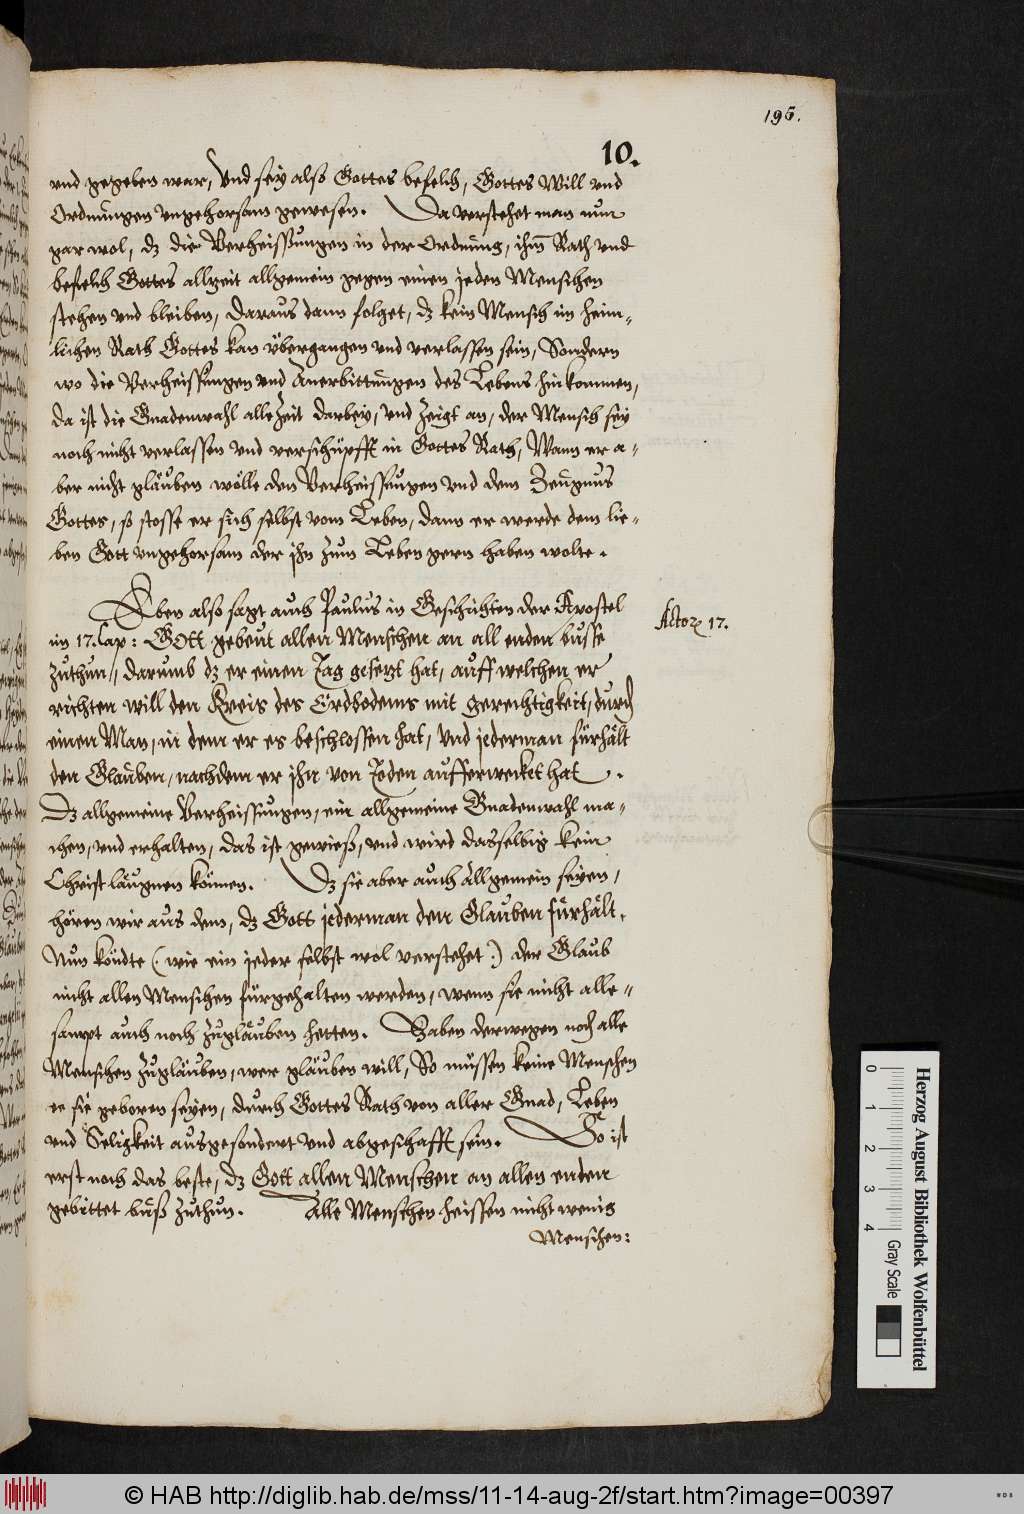 195.
10.
und gegeben war, Und sey also Gottes befelch, Gottes Will und
Ordnungen ungehorsam gewesen. Da verstehet man nun
gar wol, dz die Verheissungen in der Ordnung, ihm Rath und
befelch Gottes allzeit allgemein gegen einen jeden Menschen
stehen und bleiben, daraus dann folget, dz kein Mensch im heim-
lichen Rath Gottes kan ubergangen und verlassen sein, Sondern
wo die Verheissungen und Anerbittungen des Lebens hinkommen,
da ist die Gnadenwahl allezeit darbey, und zeigt an, der Mensch sey
noch nicht verlassen und verschüpfft in Gottes Rath, Wann er a-
ber nicht glauben wölle den Verheissungen und dem Zeugnus
Gottes, so stosse er sich selbst vom Leben, dann er werde dem lie-
ben Gott ungehorsam der jhn zum Leben gern haben wolte.
Eben also sagt auch Paulus in Geschichten der Apostel
im 17. Cap: GOtt gebeut allen Menschen an all enden busse
zuthun, darumb dz er einen Tag gesetzt hat, auff welchen er
richten will den Kreis des Erdbodems mit gerechtigkeit, durch
einen Man, in dem er es beschlossen hat, und jederman fürhält
den Glauben, nachdem er jhn von Toden aufferwecket hat.
Dz allgemeine Verheissungen, ein allgemeine Gnadenwahl ma-
chen, und erhalten, das ist gewieß, und wird dasselbig kein
Christ läugnen können. Dz sie aber auch allgemein seyen,
hören wir aus dem, dz Gott jederman den Glauben fürhält.
Nun köndte (: wie ein jeder selbst wol verstehet :) der Glaub
nicht allen Menschen fürgehalten werden, wenn sie nicht alle-
sampt auch noch zugläuben hetten. Haben derwegen noch alle
Menschen zugläuben, wer gläuben will, So müssen keine Menschen
ee sie geboren seyen, durch Gottes Rath von aller Gnad, Leben
und Seligkeit ausgesondert und abgeschafft sein. So ist
erst noch das beste, dz Gott allen Menschen an allen enden
gebittet buß zuthun. Alle Menschen heissen nicht wenig
Menschen:
Actor 17.
Herzog August Bibliothek Wolfenbüttel
0 1 2 3 4
Gray Scale
© HAB http://diglib.hab.de/mss/11-14-aug-2f/start.htm?image=00397